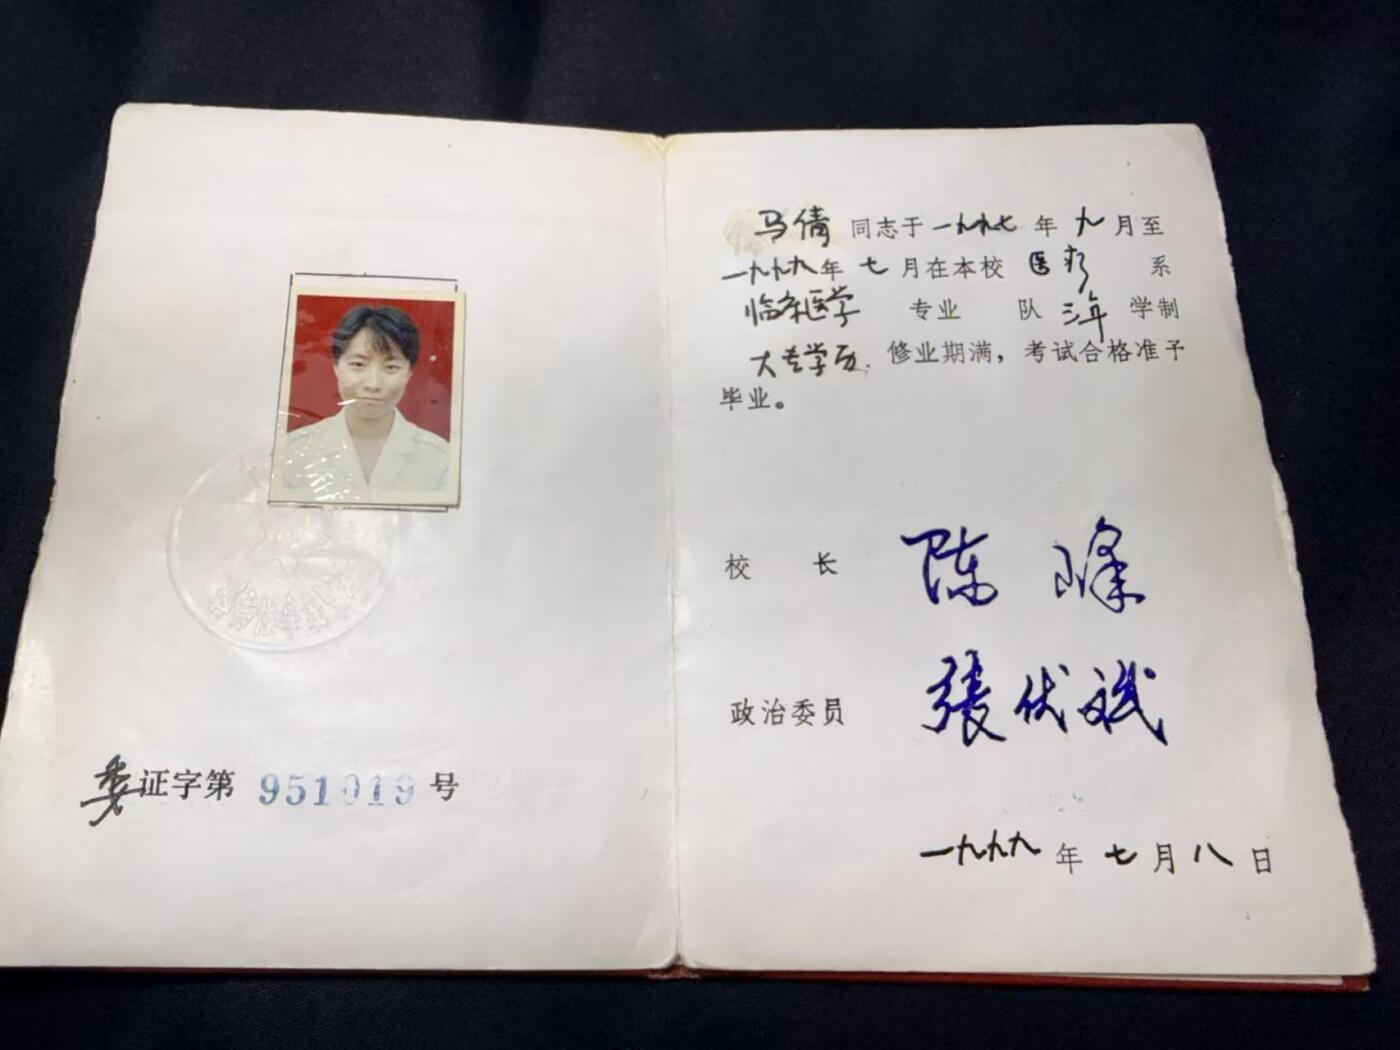 委证字第 951019 号
马倩 同志于一九九七年九月至
一九九九年七月在本校医疗系
临床医学 专业 队 三年 学制
大专学历. 修业期满，考试合格准予
毕业。
校 长 陈 峰
政治委员 張伏斌
一九九九年七月八日